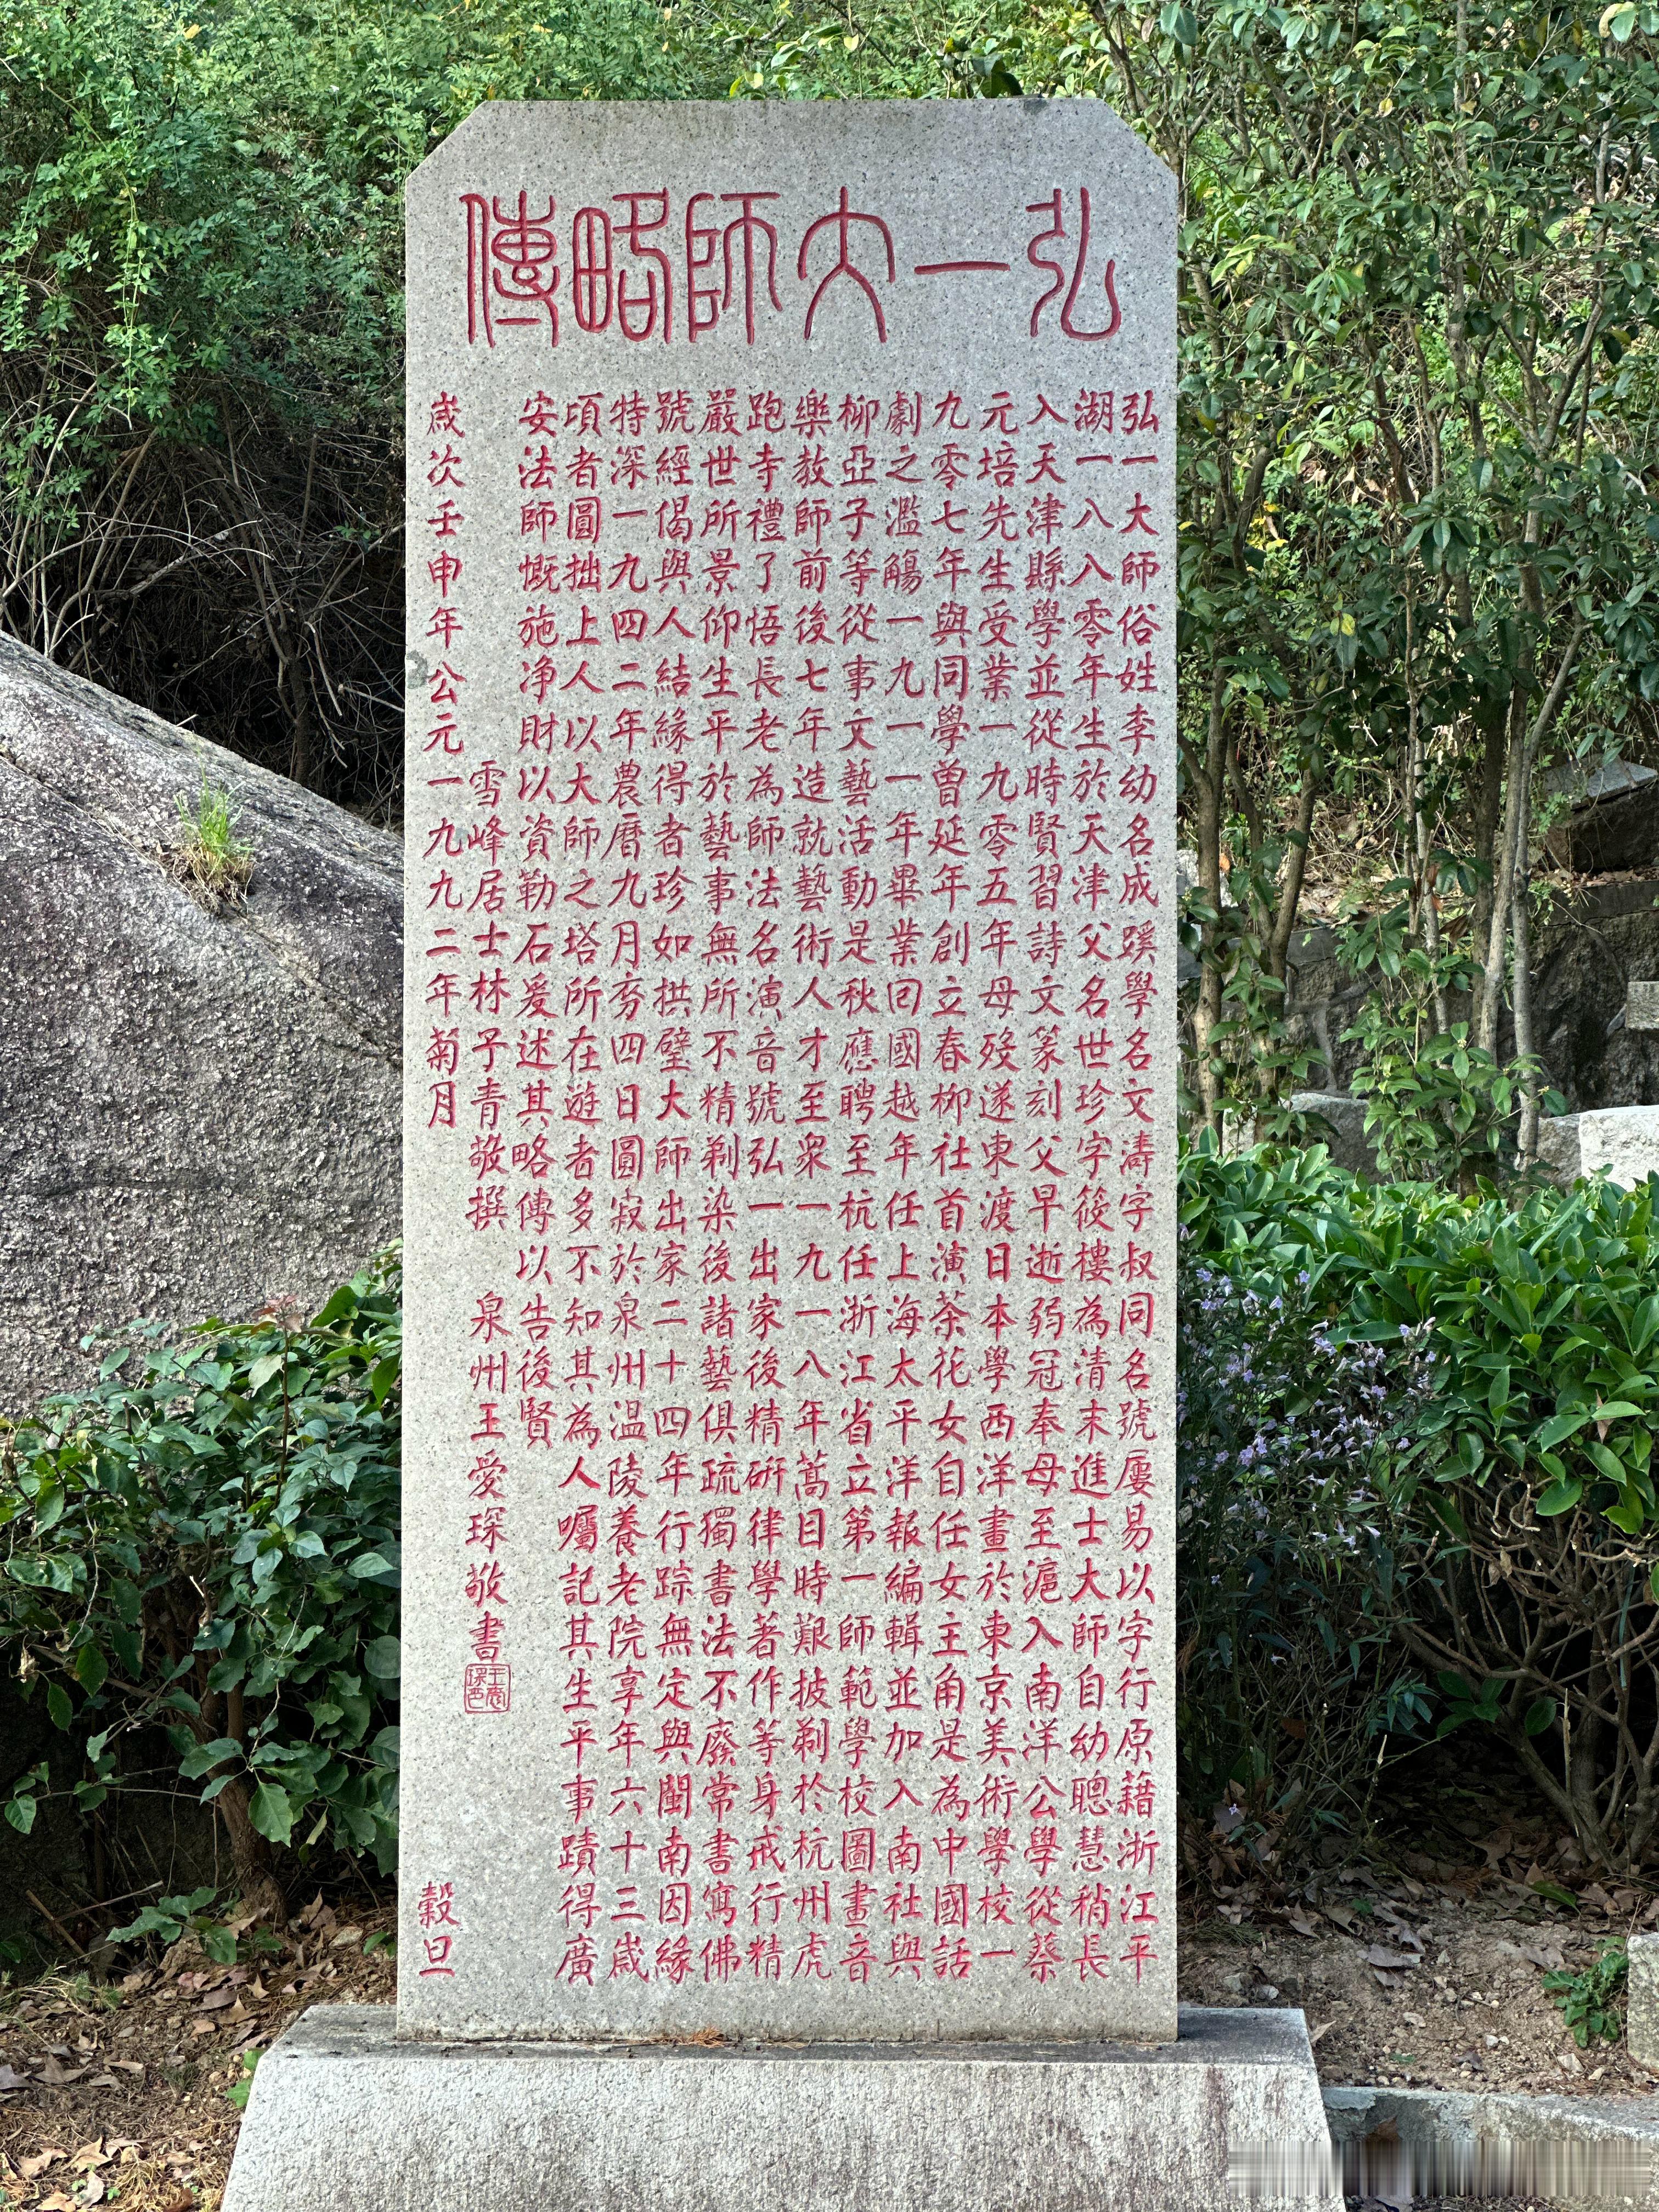 弘一大師略傳
弘一大師俗姓李幼名成蹊學名文濤字叔同名號屢易以字行原藉浙江平
湖一八八零年生於天津父名世珍字筱樓為清末進士大師自幼聰慧稍長
入天津縣學並從時賢習詩文篆刻父早逝弱冠奉母至滬入南洋公學從蔡
元培先生受業一九零五年母歿遂東渡日本學西洋畫於東京美術學校一
九零七年與同學曾延年創立春柳社首演茶花女自任女主角是為中國話
劇之濫觴一九一一年畢業回國越年任上海太平洋報編輯並加入南社與
柳亞子等從事文藝活動是秋應聘至杭任浙江省立第一師範學校圖畫音
樂教師前後七年造就藝術人才至眾一九一八年蒿目時艱披剃於杭州虎
跑寺禮了悟長老為師法名演音號弘一出家後精研律學著作等身戒行精
嚴世所景仰生平於藝事無所不精剃染後諸藝俱疏獨書法不廢常書寫佛
號經偈與人結緣得者珍如拱璧大師出家二十四年行踪無定與閩南因緣
特深一九四二年農曆九月四日圓寂於泉州温陵養老院享年六十三歲
頃者圓拙上人以大師之塔所在遊者多不知其為人囑記其生平事蹟得廣
安法師慨施净財以資勒石爰述其略傳以告後賢
雪峰居士林子青敬撰 泉州王愛琛敬書
歲次壬申年公元一九九二年菊月 穀旦